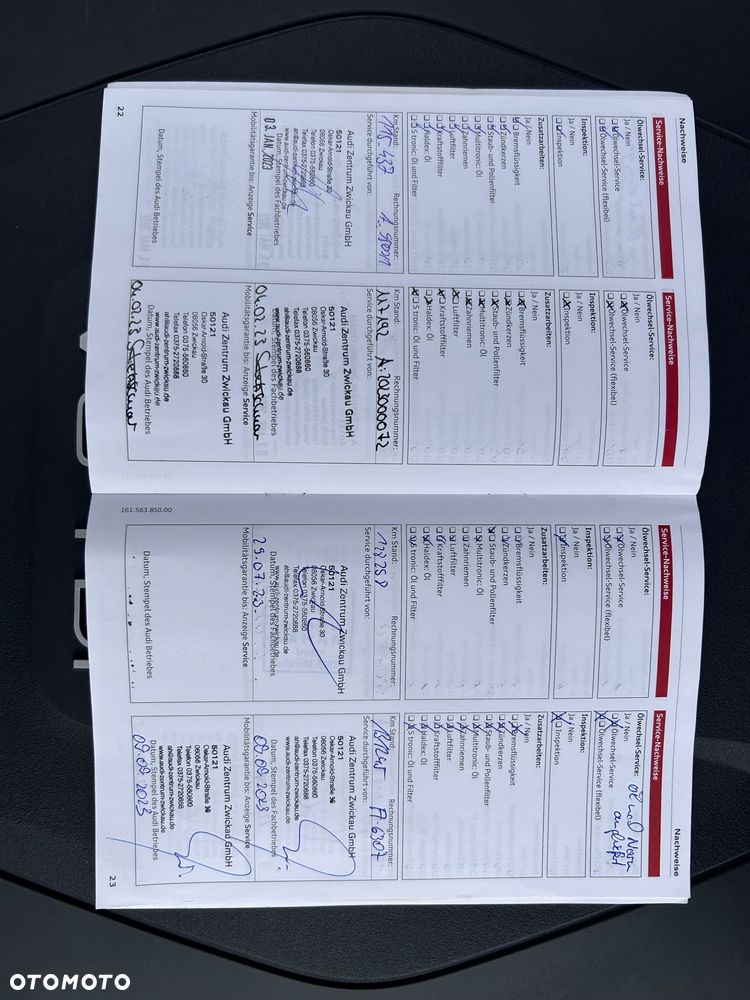 Nachweise
Service-Nachweise
Ölwechsel-Service:
Ja / Nein
Ölwechsel-Service
Ölwechsel-Service (flexibel)
Inspektion:
Ja / Nein
Inspektion
Zusatzarbeiten:
Ja / Nein
Bremsflüssigkeit
Zündkerzen
Staub- und Pollenfilter
Multitronic: Öl
Zahnriemen
Luftfilter
Kraftstofffilter
Haldex: Öl
S tronic: Öl und Filter
Km Stand: Rechnungsnummer:
Service durchgeführt von:
Audi Zentrum Zwickau GmbH
50121
Oskar-Arnold-Straße 30
08056 Zwickau
Telefon 0375-560860
Telefax 0375-2720888
ah@audi-zentrum-zwickau.de
www.audi-zentrum-zwickau.de
Datum, Stempel des Fachbetriebes
03. JAN. 2023
Mobilitätsgarantie bis: Anzeige Service
Datum, Stempel des Audi Betriebes
22
Service-Nachweise
Ölwechsel-Service:
Ja / Nein
Ölwechsel-Service
Ölwechsel-Service (flexibel)
Inspektion:
Ja / Nein
Inspektion
Zusatzarbeiten:
Ja / Nein
Bremsflüssigkeit
Zündkerzen
Staub- und Pollenfilter
Multitronic: Öl
Zahnriemen
Luftfilter
Kraftstofffilter
Haldex: Öl
S tronic: Öl und Filter
Km Stand: Rechnungsnummer:
117192
Service durchgeführt von:
Audi Zentrum Zwickau GmbH
50121
Oskar-Arnold-Straße 30
08056 Zwickau
Telefon 0375-560860
Telefax 0375-2720888
ah@audi-zentrum-zwickau.de
www.audi-zentrum-zwickau.de
Datum, Stempel des Fachbetriebes
Mobilitätsgarantie bis: Anzeige Service
Audi Zentrum Zwickau GmbH
50121
Oskar-Arnold-Straße 30
08056 Zwickau
Telefon 0375-560860
Telefax 0375-2720888
ah@audi-zentrum-zwickau.de
www.audi-zentrum-zwickau.de
Datum, Stempel des Audi Betriebes
161.563.850.00
Service-Nachweise
Ölwechsel-Service:
Ja / Nein
Ölwechsel-Service
Ölwechsel-Service (flexibel)
Inspektion:
Ja / Nein
Inspektion
Zusatzarbeiten:
Ja / Nein
Bremsflüssigkeit
Zündkerzen
Staub- und Pollenfilter
Multitronic: Öl
Zahnriemen
Luftfilter
Kraftstofffilter
Haldex: Öl
S tronic: Öl und Filter
Km Stand: Rechnungsnummer:
Service durchgeführt von:
Audi Zentrum Zwickau GmbH
50121
Oskar-Arnold-Straße 30
08056 Zwickau
Telefon 0375-560860
Telefax 0375-2720888
ah@audi-zentrum-zwickau.de
www.audi-zentrum-zwickau.de
Datum, Stempel des Fachbetriebes
Mobilitätsgarantie bis: Anzeige Service
Datum, Stempel des Audi Betriebes
Nachweise
Service-Nachweise
Ölwechsel-Service:
Ja / Nein
Ölwechsel-Service
Ölwechsel-Service (flexibel)
Inspektion:
Ja / Nein
Inspektion
Zusatzarbeiten:
Ja / Nein
Bremsflüssigkeit
Zündkerzen
Staub- und Pollenfilter
Multitronic: Öl
Zahnriemen
Luftfilter
Kraftstofffilter
Haldex: Öl
S tronic: Öl und Filter
Km Stand: Rechnungsnummer:
Service durchgeführt von:
Audi Zentrum Zwickau GmbH
50121
Oskar-Arnold-Straße 30
08056 Zwickau
Telefon 0375-560860
Telefax 0375-2720888
ah@audi-zentrum-zwickau.de
www.audi-zentrum-zwickau.de
Datum, Stempel des Fachbetriebes
Mobilitätsgarantie bis: Anzeige Service
Audi Zentrum Zwickau GmbH
50121
Oskar-Arnold-Straße 30
08056 Zwickau
Telefon 0375-560860
Telefax 0375-2720888
ah@audi-zentrum-zwickau.de
www.audi-zentrum-zwickau.de
Datum, Stempel des Audi Betriebes
23
OTOMOTO